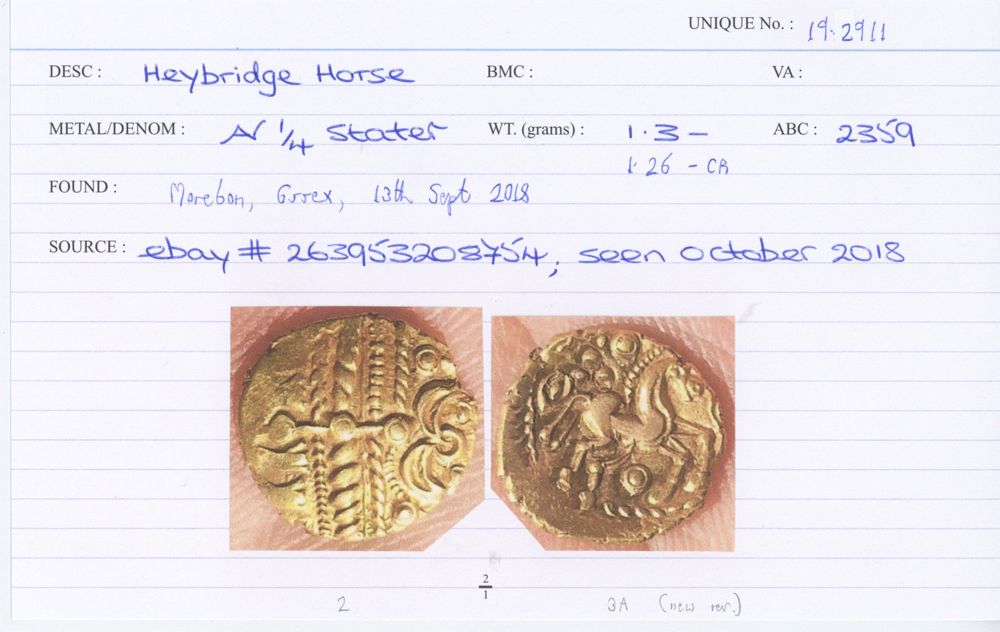 UNIQUE No. : 19.2911
DESC : Heybridge Horse BMC : VA :
METAL/DENOM : AV 1/4 Stater WT. (grams) : 1.3 – ABC : 2359
1.26 – CR
FOUND : Essex, 13th Sept 2018
SOURCE : ebay # 263953208754, seen October 2018
2/1
2 3A (new rev.)